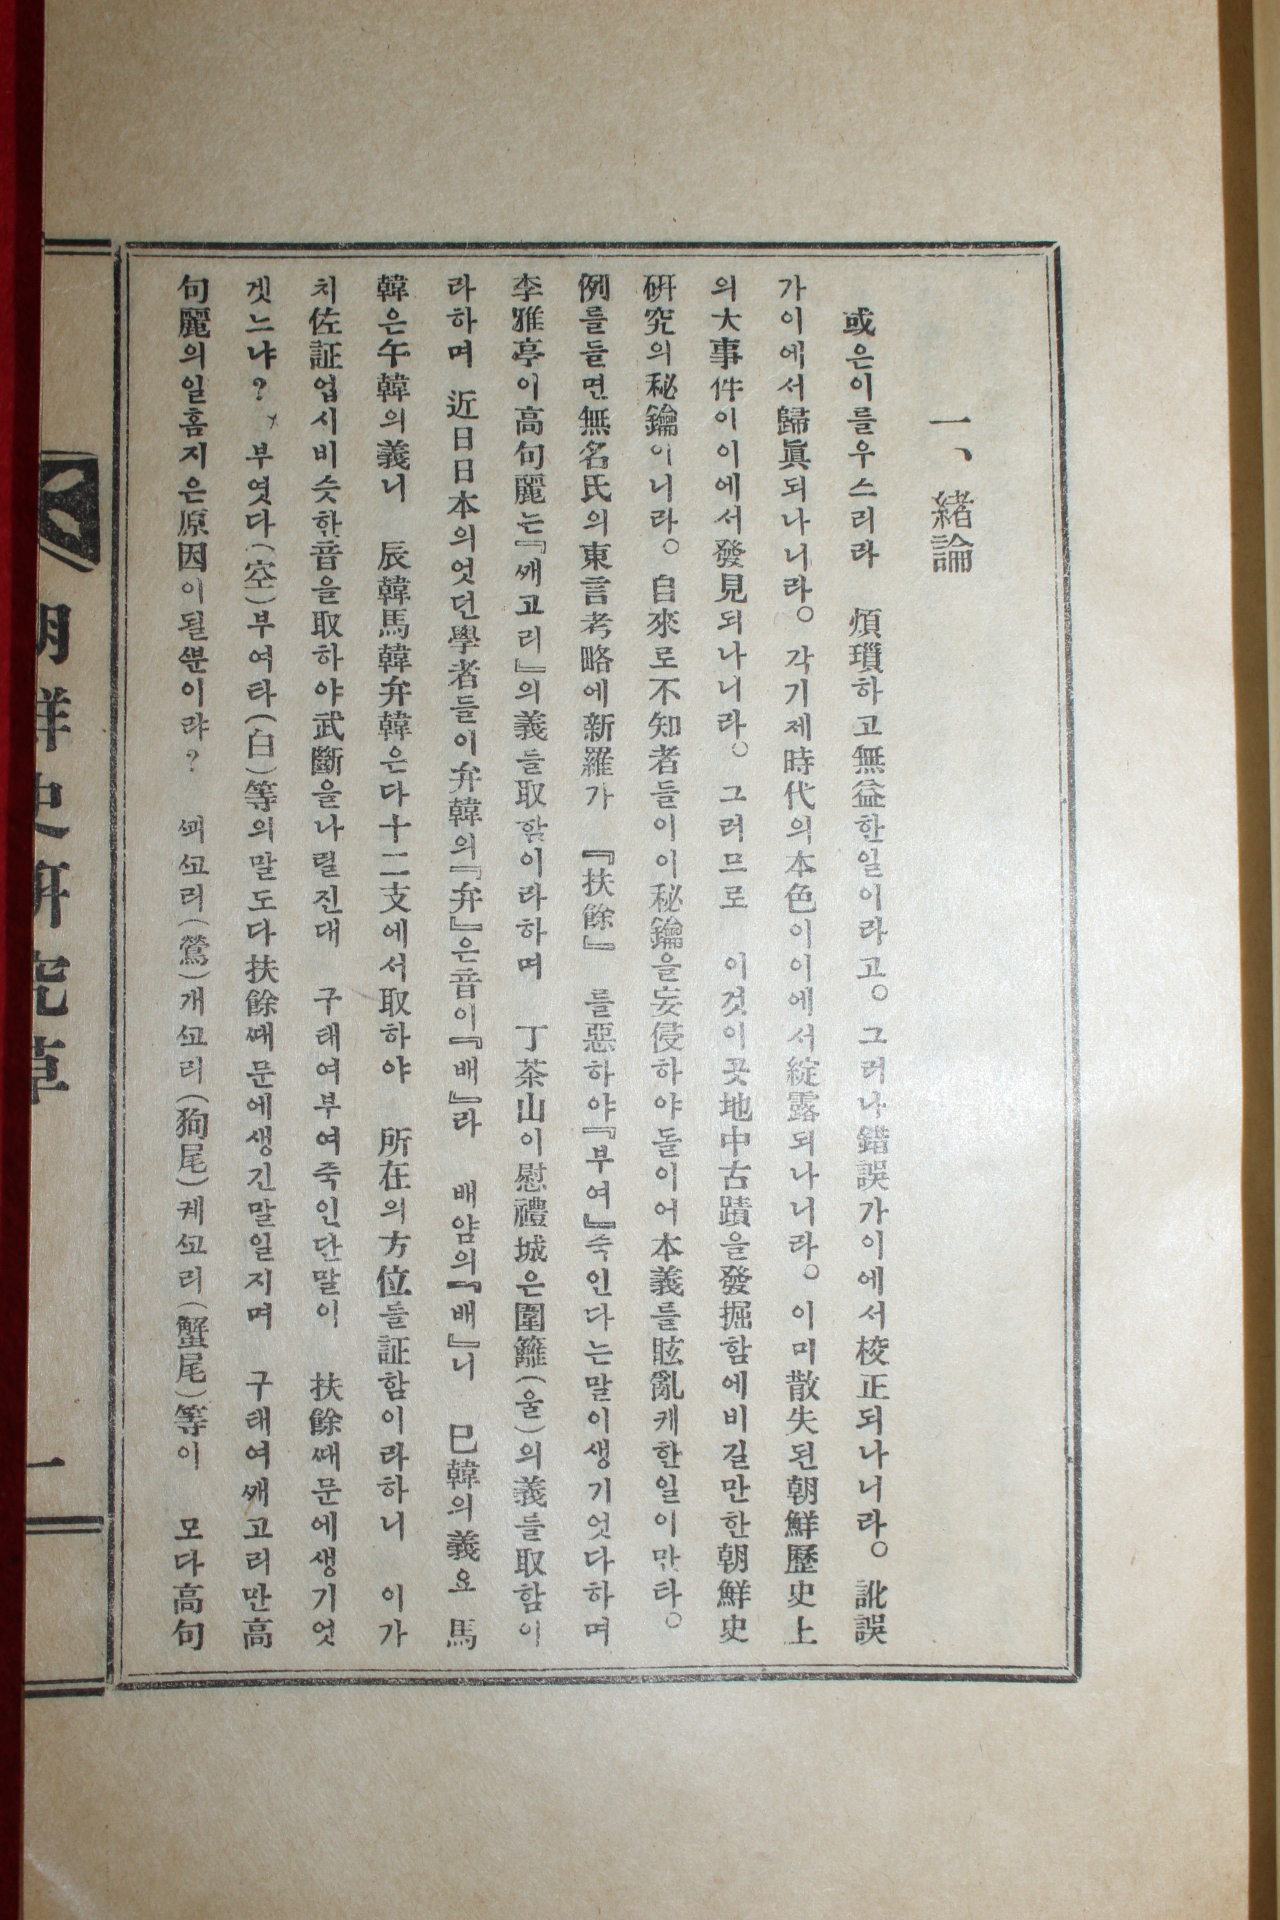 一、緖論
或은이를우스리라 煩瑣하고無益한일이라고。그러나錯誤가이에서校正되나니라。訛誤
가이에서歸眞되나니라。각기제時代의本色이이에서綻露되나니라。이미散失된朝鮮歷史上
의大事件이이에서發見되나니라。그러므로 이것이곳地中古蹟을發掘함에비길만한朝鮮史
硏究의秘鑰이니라。自來로不知者들이이秘鑰을妄侵하야돌이어本義를眩亂케한일이만타。
例를들면無名氏의東言考略에新羅가 『扶餘』 를惡하야『부여』죽인다는말이생기엇다하며
李雅亭이高句麗는『ᄭᅢ고리』의義를取함이라하며 丁茶山이慰禮城은圍籬(울)의義를取함이
라하며 近日日本의엇던學者들이弁韓의『弁』은音이『배』라 배얌의『배』니 巳韓의義요 馬
韓은午韓의義니 辰韓馬韓弁韓은다十二支에서取하야 所在의方位를証함이라하니 이가
치佐証업시비슷한音을取하야武斷을나릴진대 구태여부여죽인단말이 扶餘ᄯᅢ문에생기엇
겟느냐? 부엿다(空)부여타(白)等의말도다扶餘ᄯᅢ문에생긴말일지며 구태여ᄭᅢ고리만高
句麗의일홈지은原因이될ᄲᅮᆫ이랴? ᄭᅬᄭᅩ리(鶯)개ᄭᅩ리(狗尾)궤ᄭᅩ리(蟹尾)等이 모다高句
朝鮮史硏究草
一